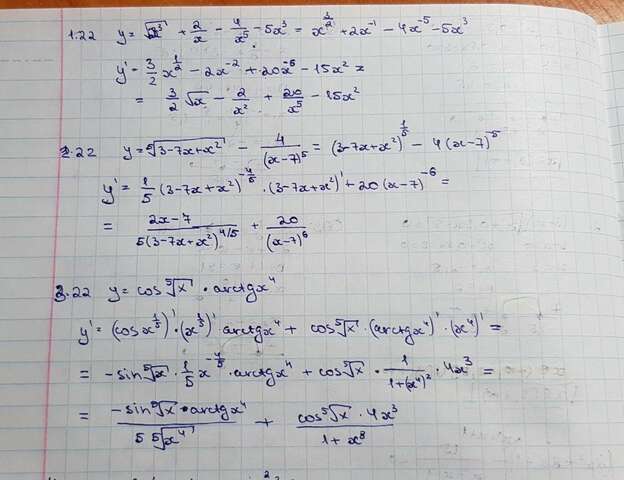 1.22 y = √x³ + 2/x - 4/x⁵ - 5x³ = x^(3/2) + 2x⁻¹ - 4x⁻⁵ - 5x³
y' = 3/2 x^(1/2) - 2x⁻² + 20x⁻⁶ - 15x² =
= 3/2 √x - 2/x² + 20/x⁵ - 15x²
2.22 y = ⁵√(3-7x+x²) - 4/(x-7)⁵ = (3-7x+x²)^(1/5) - 4(x-7)⁻⁵
y' = 1/5 (3-7x+x²)^(-4/5) · (3-7x+x²)' + 20(x-7)⁻⁶ =
= (2x-7)/(5(3-7x+x²)^(4/5)) + 20/(x-7)⁶
3.22 y = cos ⁵√x · arctgx⁴
y' = (cosx^(1/5))' · (x^(1/5))' arctgx⁴ + cos ⁵√x · (arctgx⁴)' · (x⁴)' =
= -sin ⁵√x · 1/5 x^(-4/5) · arctgx⁴ + cos ⁵√x · 1/(1+(x⁴)²) · 4x³ =
= (-sin ⁵√x · arctgx⁴)/(5 ⁵√x⁴) + (cos ⁵√x · 4x³)/(1+x⁸)